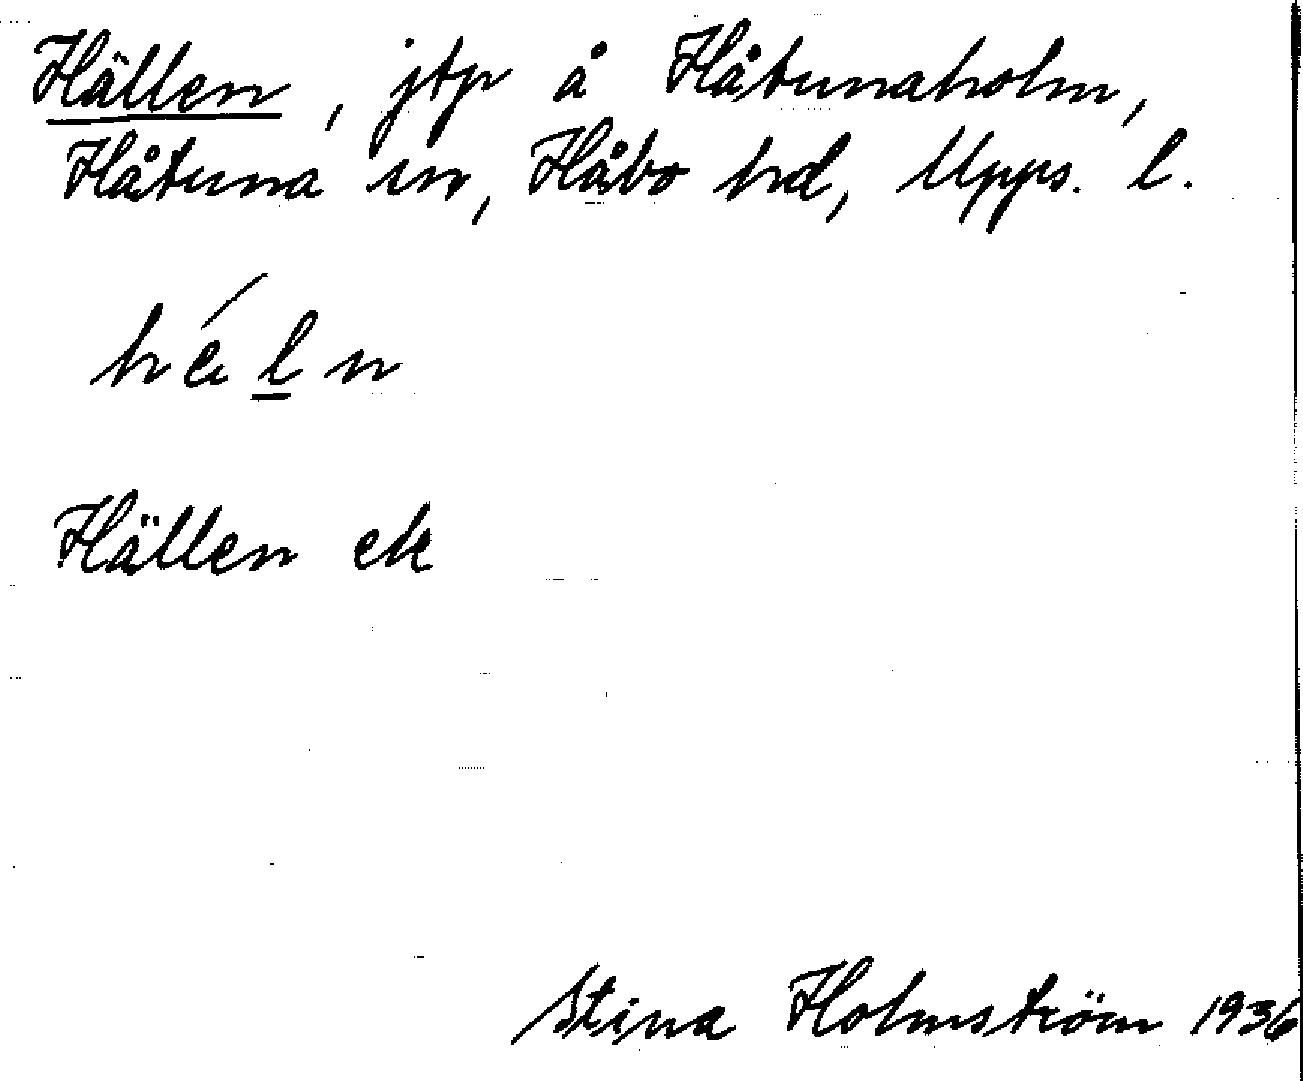 Hällen, jtp å Håtunaholm,
Håtuna sn, Håbo hd, Upps. l.
hé̜l̲n
Hällen ek
Stina Holmström 1936